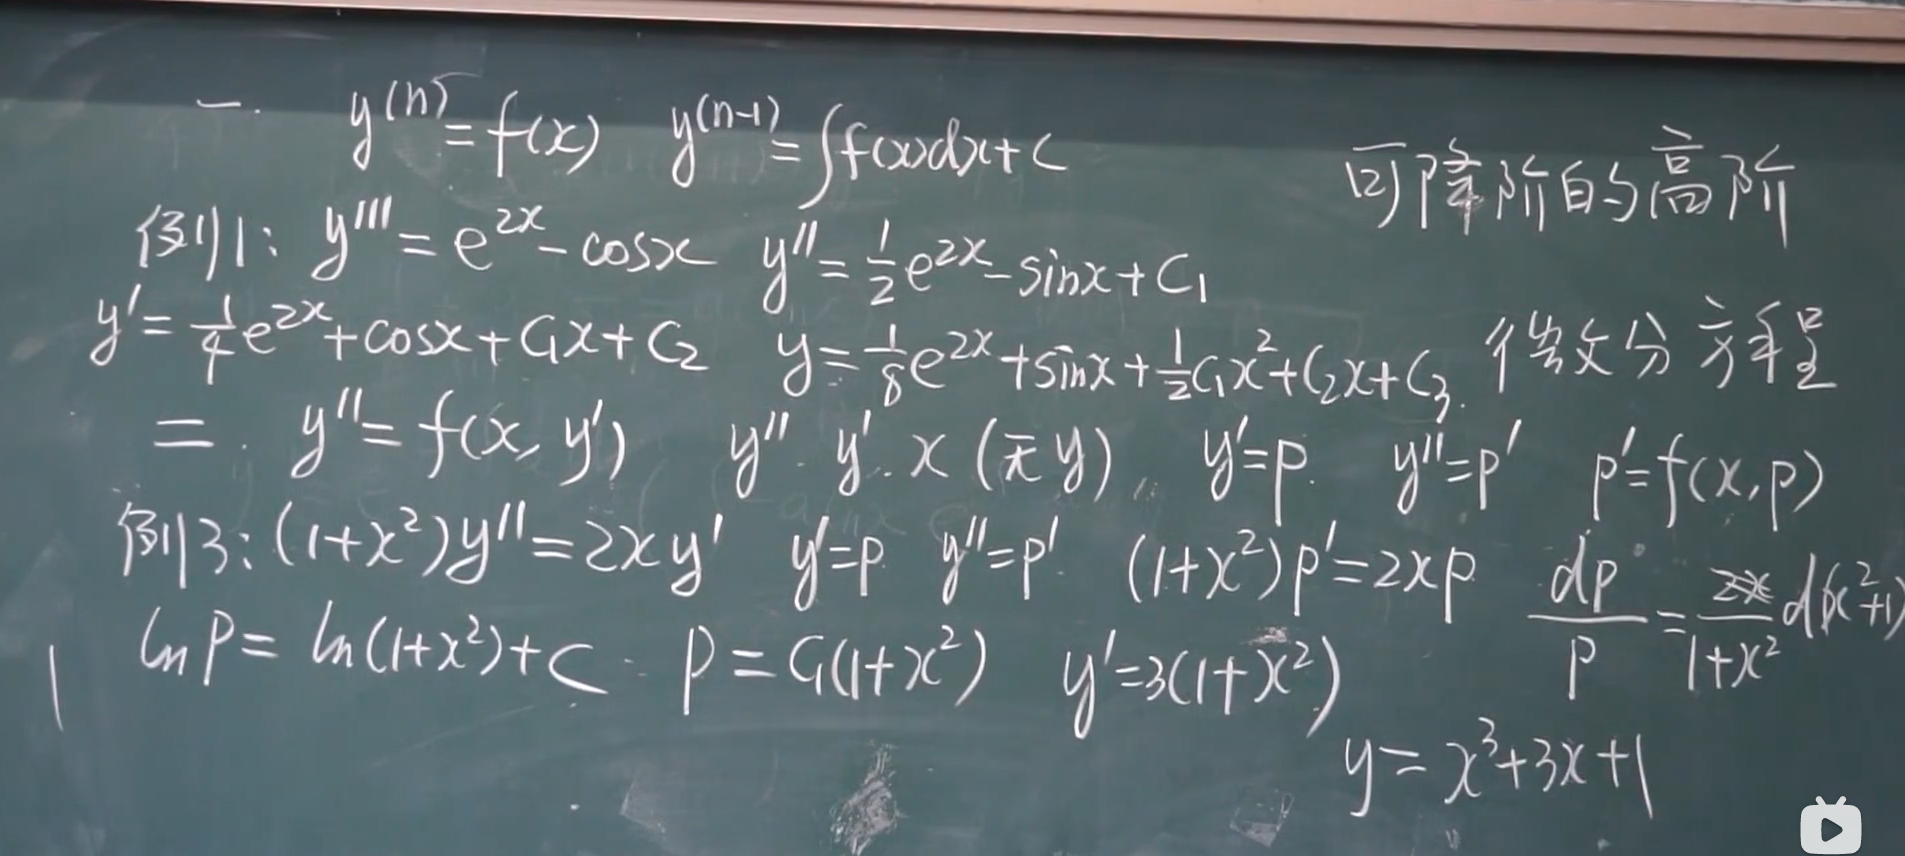 一. y⁽ⁿ⁾=f(x) y⁽ⁿ⁻¹⁾=∫f(x)dx+C
可降阶的高阶
例1: y'''=e²ˣ-cosx y''=½e²ˣ-sinx+C₁
y'=¼e²ˣ+cosx+C₁x+C₂ y=⅛e²ˣ+sinx+½C₁x²+C₂x+C₃.
微分方程
二. y''=f(x,y') y'' y' x (无y) y'=p y''=p' p'=f(x,p)
例3: (1+x²)y''=2xy' y'=p y''=p' (1+x²)p'=2xp dp/p=2x/(1+x²) d(x²+1)
lnP=ln(1+x²)+C P=C₁(1+x²) y'=3(1+x²)
y=x³+3x+1